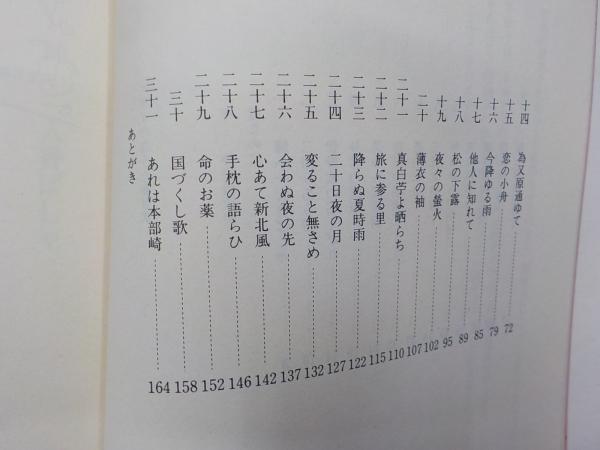 十四 為又原通ゆて 72
十五 恋の小舟 79
十六 今降ゆる雨 85
十七 他人に知れて 89
十八 松の下露 95
十九 夜々の螢火 102
二十 薄衣の袖 107
二十一 真白苧よ晒らち 110
二十二 旅に参る里 115
二十三 降らぬ夏時雨 122
二十四 二十日夜の月 127
二十五 変ること無さめ 132
二十六 会わぬ夜の先 137
二十七 心あて新北風 142
二十八 手枕の語らひ 146
二十九 命のお薬 152
三十 国づくし歌 158
三十一 あれは本部崎 164
あとがき